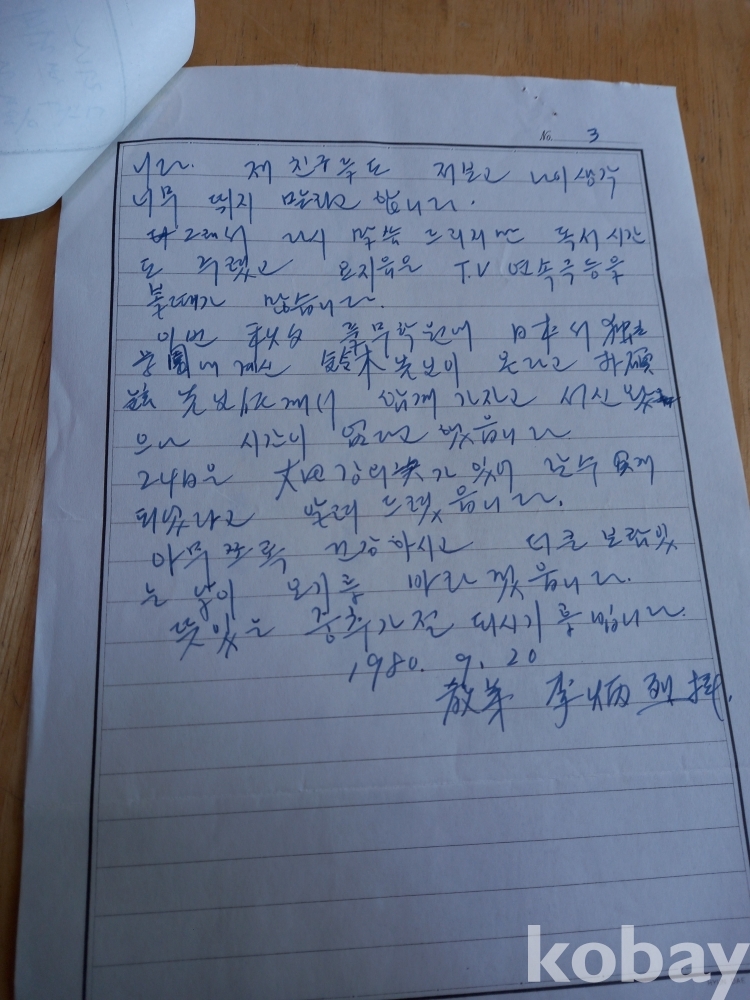 No. 3
니다. 제 친구들도 저보고 나이 생각
너무 하지 말라고 합니다.
그래서 다시 말씀 드리지만 독서시간
도 주렸고 요지음은 T.V 연속극 등을
볼때가 많습니다.
이번 秋夕 풀무학원에 日本서 独立
学園에 계신 鈴木 선보이 온다고
선보 께서 함께 가자고 서신
으나 시간이 없다고 했읍니다.
24日은 大田 강의 가 있어 갈수 없게
되었다고 알려 드렸읍니다.
아무쪼록 건강하시고 더 큰 보람있
는 날이 오기를 바라겠읍니다.
뜻있는 중추가절 되시기를 빕니다.
1980. 9. 20
教弟 李炳烈 拜.
kobay